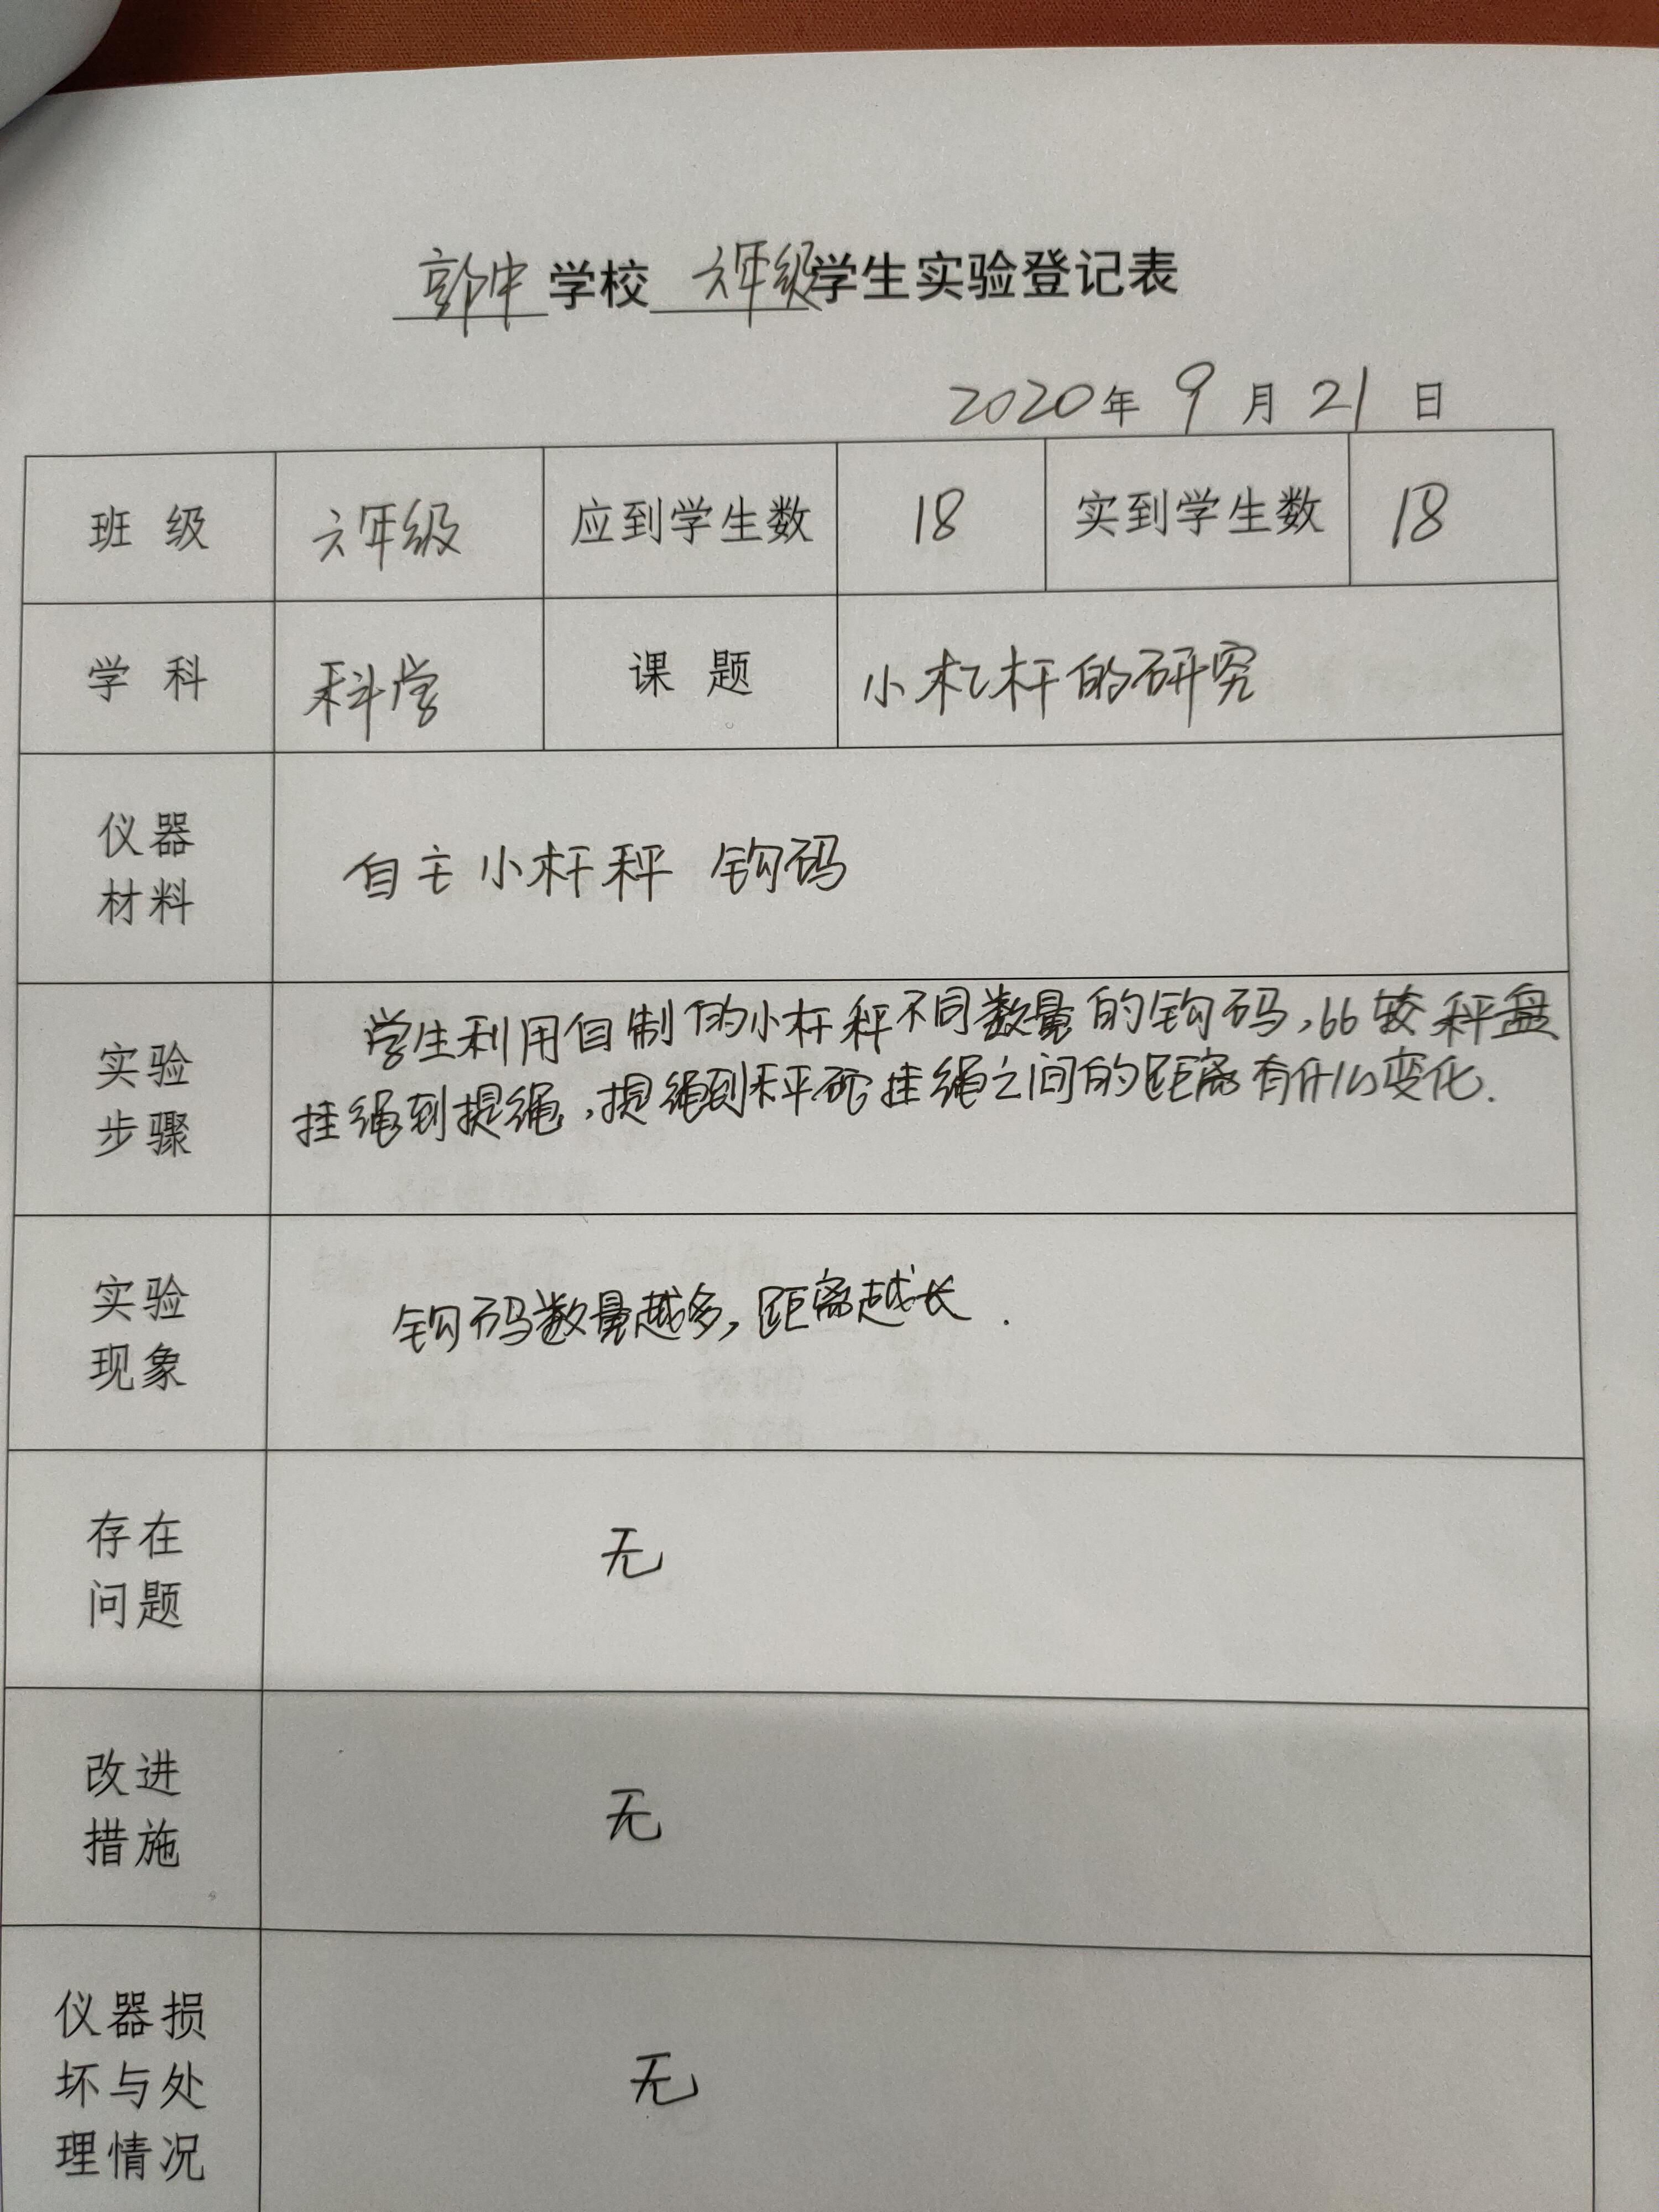 郭中学校 六年级学生实验登记表
2020年 9 月 21 日
班 级 六年级 应到学生数 18 实到学生数 18
学 科 科学 课 题 小杠杆的研究
仪器
材料
自主小杆秤 钩码
实验
步骤
学生利用自制的小杆秤不同数量的钩码,比较秤盘
挂绳到提绳,提绳到秤砣挂绳之间的距离有什么变化.
实验
现象
钩码数量越多,距离越长.
存在
问题
无
改进
措施
无
仪器损
坏与处
理情况
无